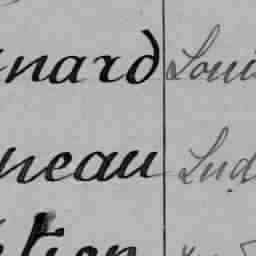 nard Loui
neau Lud
tion